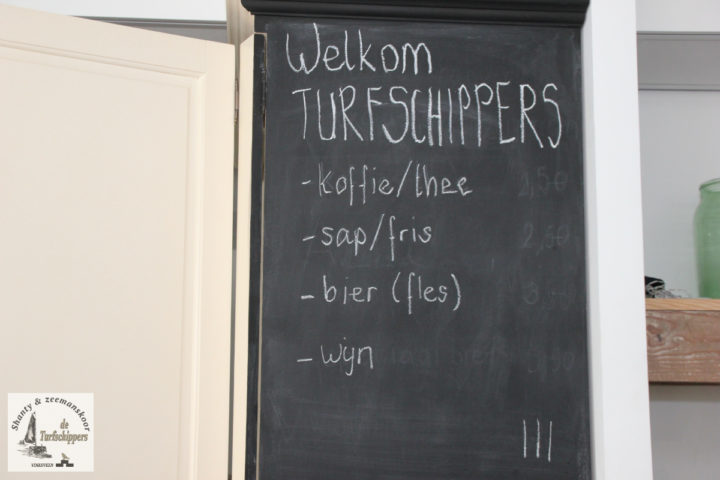 Welkom
TURFSCHIPPERS
- koffie/thee
- sap/fris 2,50
- bier (fles)
- wijn
III
Shanty & zeemanskoor
de
Turfschippers